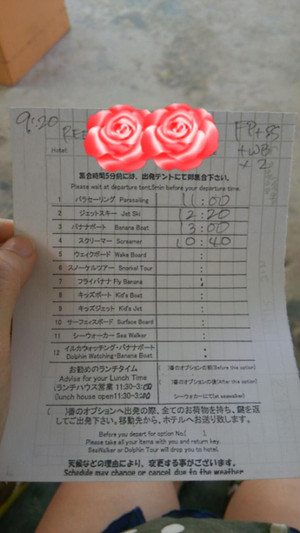 9:20
FP+SS
+WB
× 2
Hotel:
集合時間5分前には、出発テントにて御集合下さい。
Please wait at departure tent,5min before your departure time.
1 パラセーリング Parasailing 11:00
2 ジェットスキー Jet Ski 12:20
3 バナナボート Banana Boat 13:00
4 スクリーマー Screamer 10:40
5 ウェイクボード Wake Board :
6 スノーケルツアー Snorkel Tour :
7 フライバナナ Fly Banana :
8 キッズボート Kid's Boat :
9 キッズジェット Kid's Jet :
10 サーフェイスボード Surface Board :
11 シーウォーカー Sea Walker :
12 イルカウォッチング・バナナボート
Dolphin Watching+Banana Boat :
お勧めのランチタイム
Advise for your Lunch Time
ランチハウス営業 11:30-3:00
(Lunch house open11:30-3:00)
( )番のオプションの前(Before the option)
( )番のオプションの後(After the option)
シーウォーカーにて(at seawalker)
( )番のオプションへ出発の際、全てのお荷物を持ち、鍵を返
してご出発下さい。移動先から、ホテルへお送り致します。
Before you depart for option No.( )
Please take all your items with you and return key.
SeaWalker or Dolphin Tour will drop you to hotel.
天候などの理由により、変更する事がございます。
Schedule may change or cancel due to the weather